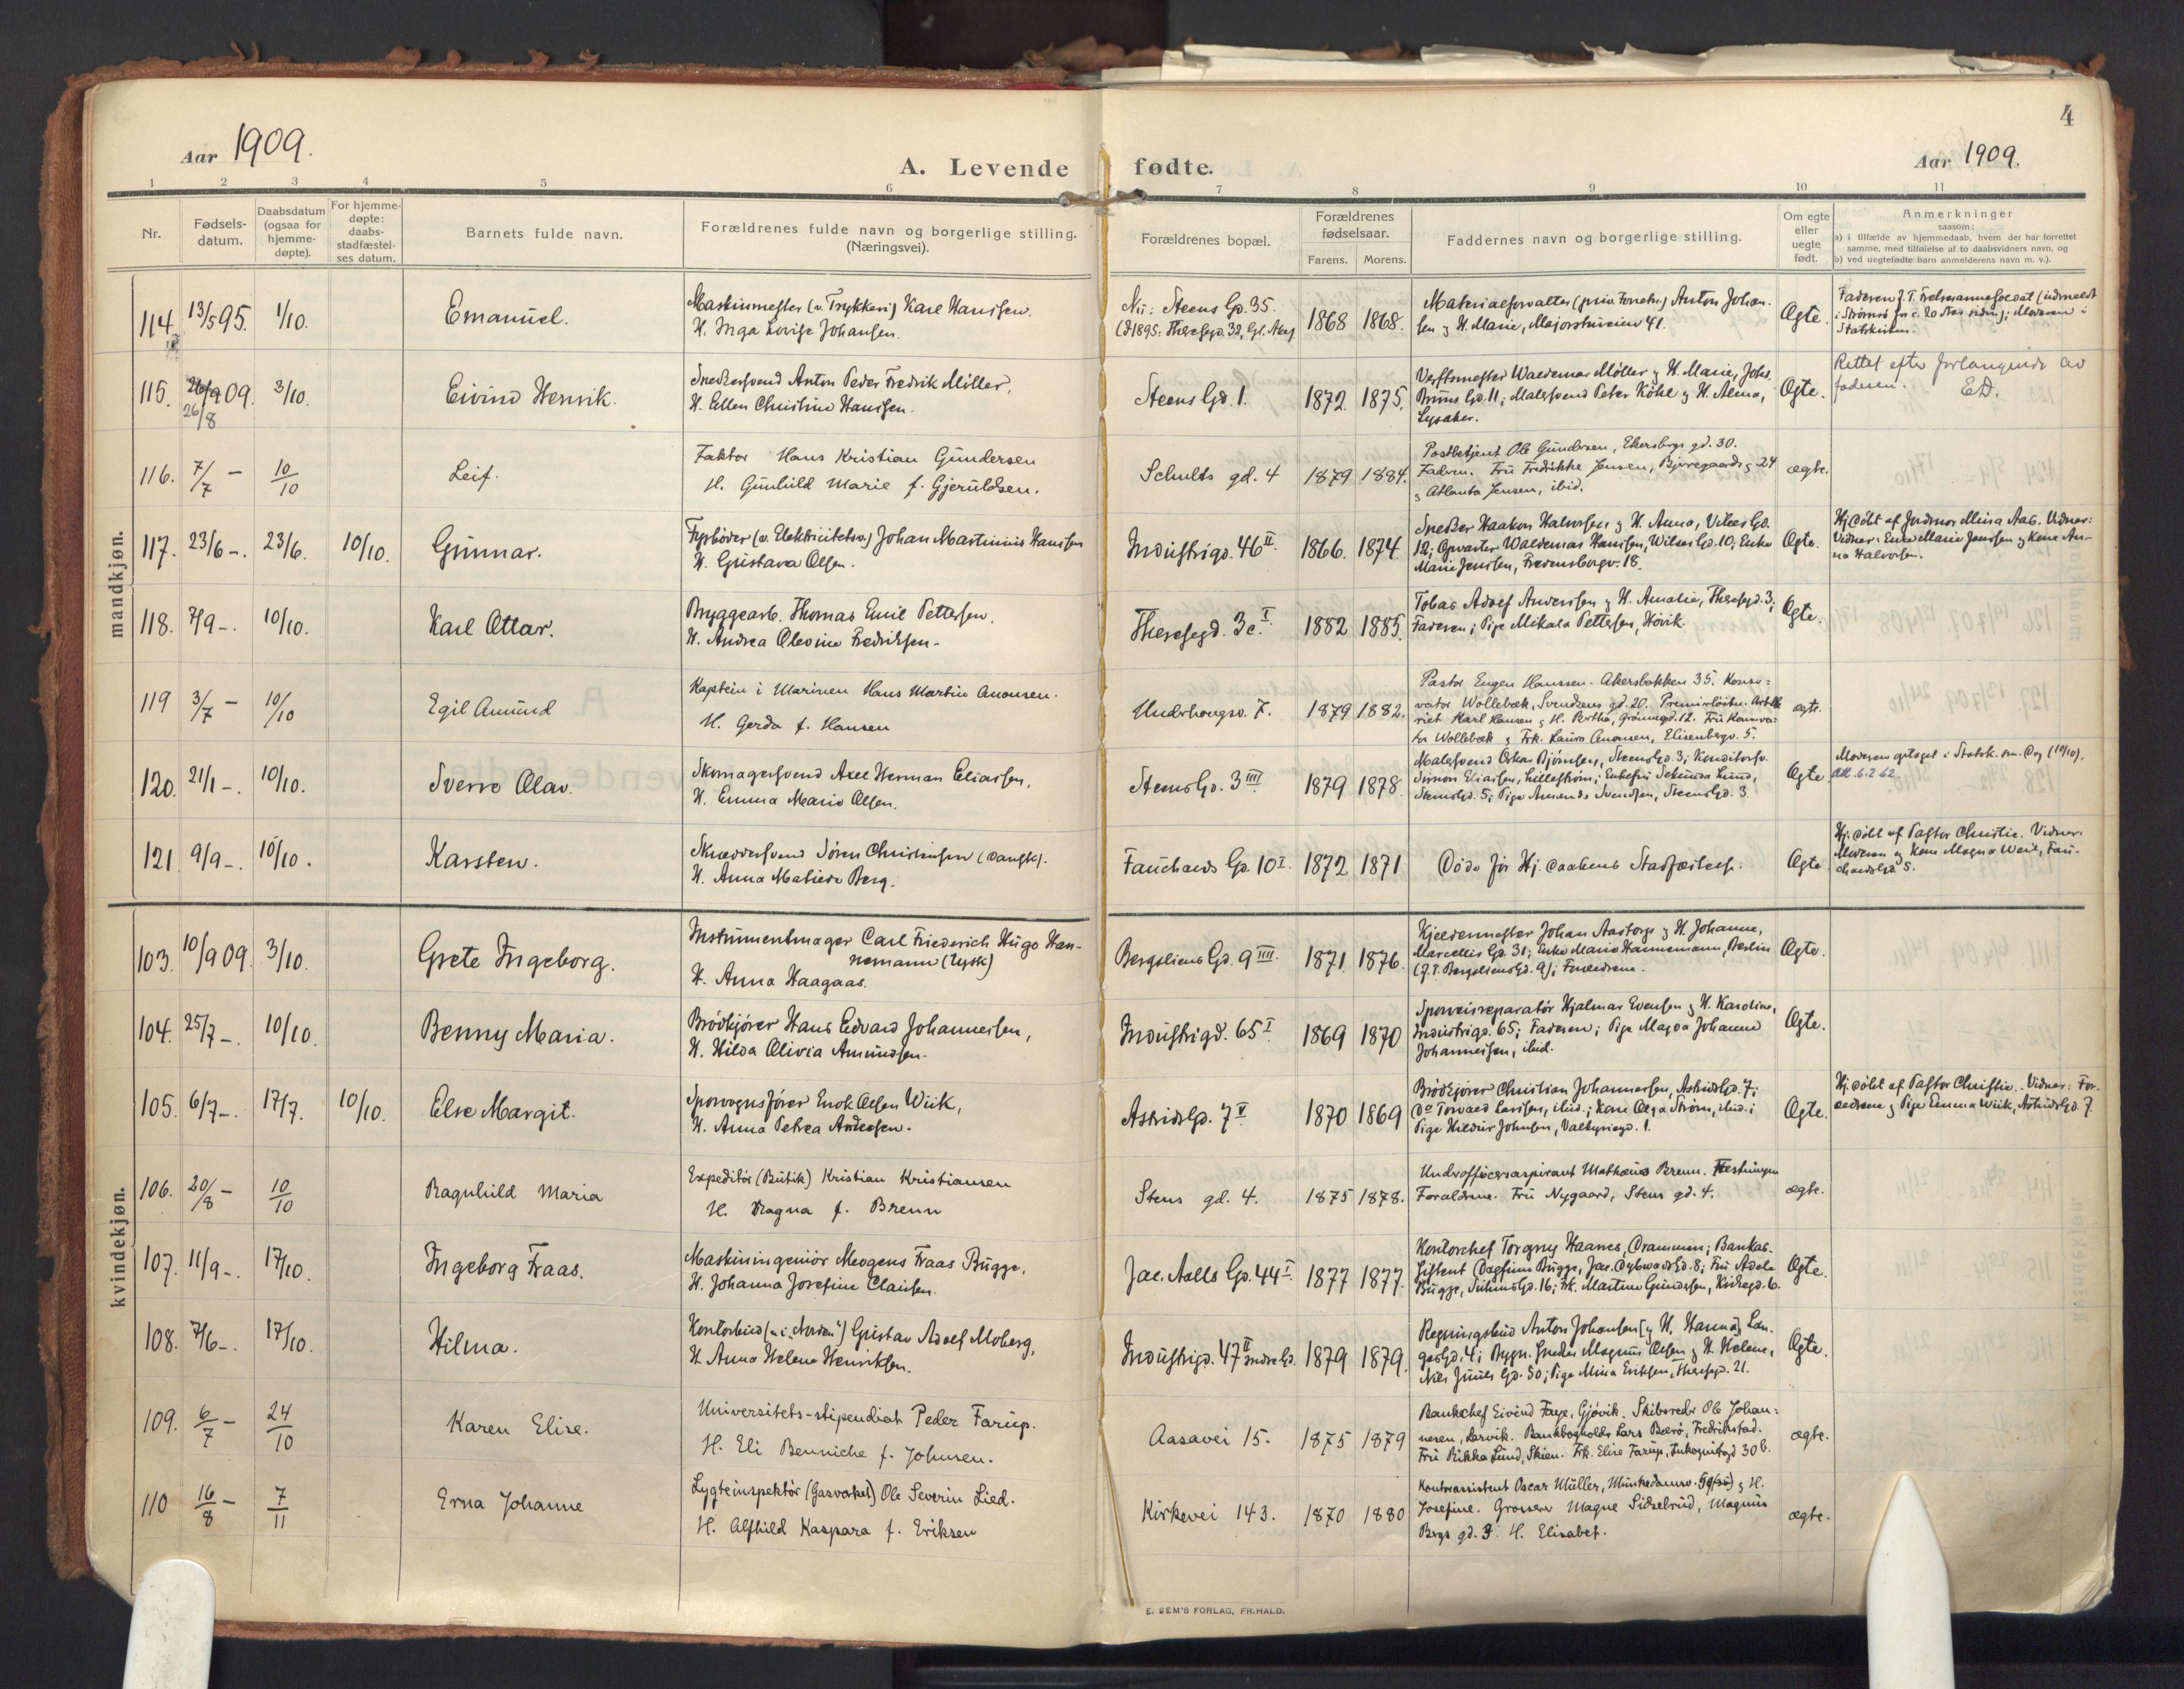 4
Aar 1909.
A. Levende fødte.
Aar 1909.
1 2 3 4 5 6 7 8 9 10 11
Nr.
Fødsels-
datum.
Daabsdatum
(ogsaa for
hjemme-
døpte).
For hjemme-
døpte:
daabs-
stadfæstel-
ses datum.
Barnets fulde navn.
Forældrenes fulde navn og borgerlige stilling.
(Næringsvei).
Forældrenes bopæl.
Forældrenes
fødselsaar.
Farens. Morens.
Faddernes navn og borgerlige stilling.
Om egte
eller
uegte
født.
Anmerkninger
saasom:
a) i tilfælde av hjemmedaab, hvem der har forrettet
samme, med tilføielse af to daabsvidners navn, og
b) ved uegtefødte barn anmelderens navn m. v.).
mandkjøn.
114. 13/5 95. 1/10. Emanuel.
Maskinmester (v. Trykkeri) Karl Hansen.
H. Inga Lovise Johansen.
Nu: Steens Gd. 35.
1868 1868.
Materialforvalter Anton Johan-
sen & H. Marie, Majorstuveien 41.
Ægte.
115. 26/9 09. 3/10. Eivind Henrik.
26/8
Snedkersvend Anton Peder Fredrik Möller,
H. Ellen Christine Hansen.
Steens Gd. 1. 1872. 1875.
Verftsmester Waldemar Möller & H. Marie, Johs.
Bruns Gd. 11; Malersvend Peter Köhl & H. Alma,
Lysaker.
Ægte.
Rettet efter forlangende av
faderen. ED.
116. 7/7 – 10/10 Leif.
Faktor Hans Kristian Gundersen
H. Gunhild Marie f. Gjeruldsen.
Schults gd. 4 1879 1884.
Postbetjent Ole Gundersen, Ekersbergs gd. 30.
Faderen. Fru Fredrikke Jensen, Bjerregaards g 24
& Atlanta Jensen, ibid.
ægte.
117. 23/6 –. 23/6. 10/10. Gunnar.
Fyrbøder (v. Elektricitetsv.) Johan Martinius Hansen
H. Gustava Olsen.
Industrigd. 46 II. 1866. 1874.
Snedker Haakon Halvorsen & H. Anna, Vibes Gd.
12; Opvarter Waldemar Hansen, Wilses Gd. 10; Enke
Marie Jensen, Fredensborgv. 18.
Ægte.
Hj. døbt af Jordmor Mina Aas. Vidner:
Vidner: Enke Marie Jensen & Kone An-
na Halvorsen.
118. 7/9 –. 10/10. Karl Ottar.
Bryggearb. Thomas Emil Pettersen,
H. Andrea Olevine Fredriksen.
Theresegd. 3c. I. 1882 1885.
Tobias Adolf Andersen & H. Amalie, Theresegd. 3;
Faderen; Pige Mikala Pettersen, Hövik.
Ægte.
119 3/7 – 10/10 Egil Amund
Kaptein i Marinen Hans Martin Amonsen.
H. Gerda f. Hansen
Underhaugsv. 7. 1879 1882.
Pastor Eugen Hanssen. Akersbakken 35. Konser-
vator Wollebæk, Svendsens gd. 20. Premierlöitn.
Karl Hansen & H. Bertha, Grönnegd. 12. Fru Konserva-
tor Wollebæk & Frk. Laura Amonsen, Elisenbergv. 5.
ægte.
120. 21/1 –. 10/10. Sverre Olav.
Skomagersvend Axel Herman Eliassen,
H. Emma Marie Olsen.
Steens Gd. 3 IIII. 1879 1878.
Malersvend Oskar Bjørnsen, Steens Gd. 3; Konditorsv.
Simon Eliassen, Lilleström; Enkefru Sekunda Lund,
Steens Gd. 5; Pige Amanda Svendsen, Steens Gd. 3.
Ægte.
Moderen optaget i Statsk. sm. Dag (10/10).
121. 9/9 –. 10/10. Karsten.
Skræddersvend Sören Christensen (dansk).
H. Anna Matilde Berg.
Fauchalds Gd. 10 I. 1872 1871
Döde för Hj. daabens Stadfæstelse.
Ægte.
Hj. døbt af Pastor Christie. Vidner:
Moderen & Kone Magna Weil, Fau-
chalds Gd. 5.
kvindekjøn.
103. 10/9 09. 3/10. Grete Ingeborg.
Instrumentmager Carl Friederich Hugo Han-
nemann (tysk)
H. Anna Haagaas.
Bergsliens Gd. 9 IIII. 1871. 1876.
Kjeldermester Johan Aastorp & H. Johanne,
Marcellis Gd. 31; Enke Maria Hannemann, Berlin
(f. T. Bergsliens Gd. 9); Forældrene.
Ægte.
104. 25/7 –. 10/10. Benny Maria.
Brödkjörer Hans Edvard Johannesen,
H. Hilda Olivia Amundsen.
Industrigd. 65 I. 1869 1870
Sporveisreparatör Hjalmar Evensen & H. Karoline,
Industrigd. 65; Faderen; Pige Magda Johanne
Johannesen, ibid.
Ægte.
105. 6/7 –. 17/7. 10/10. Else Margit.
Sporvognsfører Enok Olsen Wiik,
H. Anna Petrea Andersen.
Astrids Gd. 7 V. 1870 1869
Brödkjörer Christian Johannesen, Astrids Gd. 7;
Do Torvald Larsen, ibid.; Kone Olga Ström, ibid.;
Pige Hildur Johnsen, Valkyriegd. 1.
Ægte.
Hj. døbt af Pastor Christie. Vidner: For-
ældrene & Pige Emma Wiik, Astrids Gd. 7.
106. 20/8 – 10/10 Ragnhild Maria
Expeditör (Butik) Kristian Kristiansen
H. Magna f. Brenn
Stens gd. 4. 1875 1878.
Underofficersaspirant Mathæus Brenn. Festningen
Forældrene. Fru Nygaard, Stens gd. 4.
ægte.
107. 11/9 –. 17/10. Ingeborg Fraas.
Maskiningeniör Mogens Fraas Bugge,
H. Johanna Josefine Clausen.
Jac. Aalls Gd. 44 I. 1877 1877.
Kontorchef Torgny Haanes, Drammen; Bankas-
sistent Dagfinn Bugge, Jac. Dybwads Gd. 8; Fru Adele
Bugge, Suhms Gd. 16; Frk. Martine Gundersen, Kirkegd. 6.
Ægte.
108. 7/6 –. 17/10. Hilma.
Kontorbud (v. i „Norden“) Gustav Adolf Moberg,
H. Anna Helene Henriksen.
Industrigd. 47 II 1879 1879.
Regningsbud Anton Johansen [& H. Hanna], Lan-
ges Gd. 4; Bygn. Snedker Magnus Olsen & H. Helene,
Niels Juuls Gd. 50; Pige Mina Eriksen, Theresegd. 21.
Ægte.
109. 6/7 – 24/10 Karen Elise.
Universitets-stipendiat Peder Farup.
H. Eli Benniche f. Johnsen.
Aasavei 15. 1875 1879
Bankchef Eivind Faye, Gjövik. Skibsreder Ole Johan-
nesen, Larvik. Bankbogholder Lars Bærö, Fredrikstad.
Fru Rikka Lund, Skien. Frk. Elise Farup, Inkognitogd 30 b.
ægte.
110 16/8 – 7/11 Erna Johanne
Lygteinspektör (Gasverket) Ole Severin Lied.
H. Alfhild Kaspara f. Eriksen
Kirkevei 143. 1870 1880
Kontorassistent Oscar Müller, Munkedamsv. & H.
Josefine. Grosserer Magne Sidselrud, Magnus
Bergs gd. 3. H. Elisabet.
ægte.
E. SEM'S FORLAG, FR.HALD.